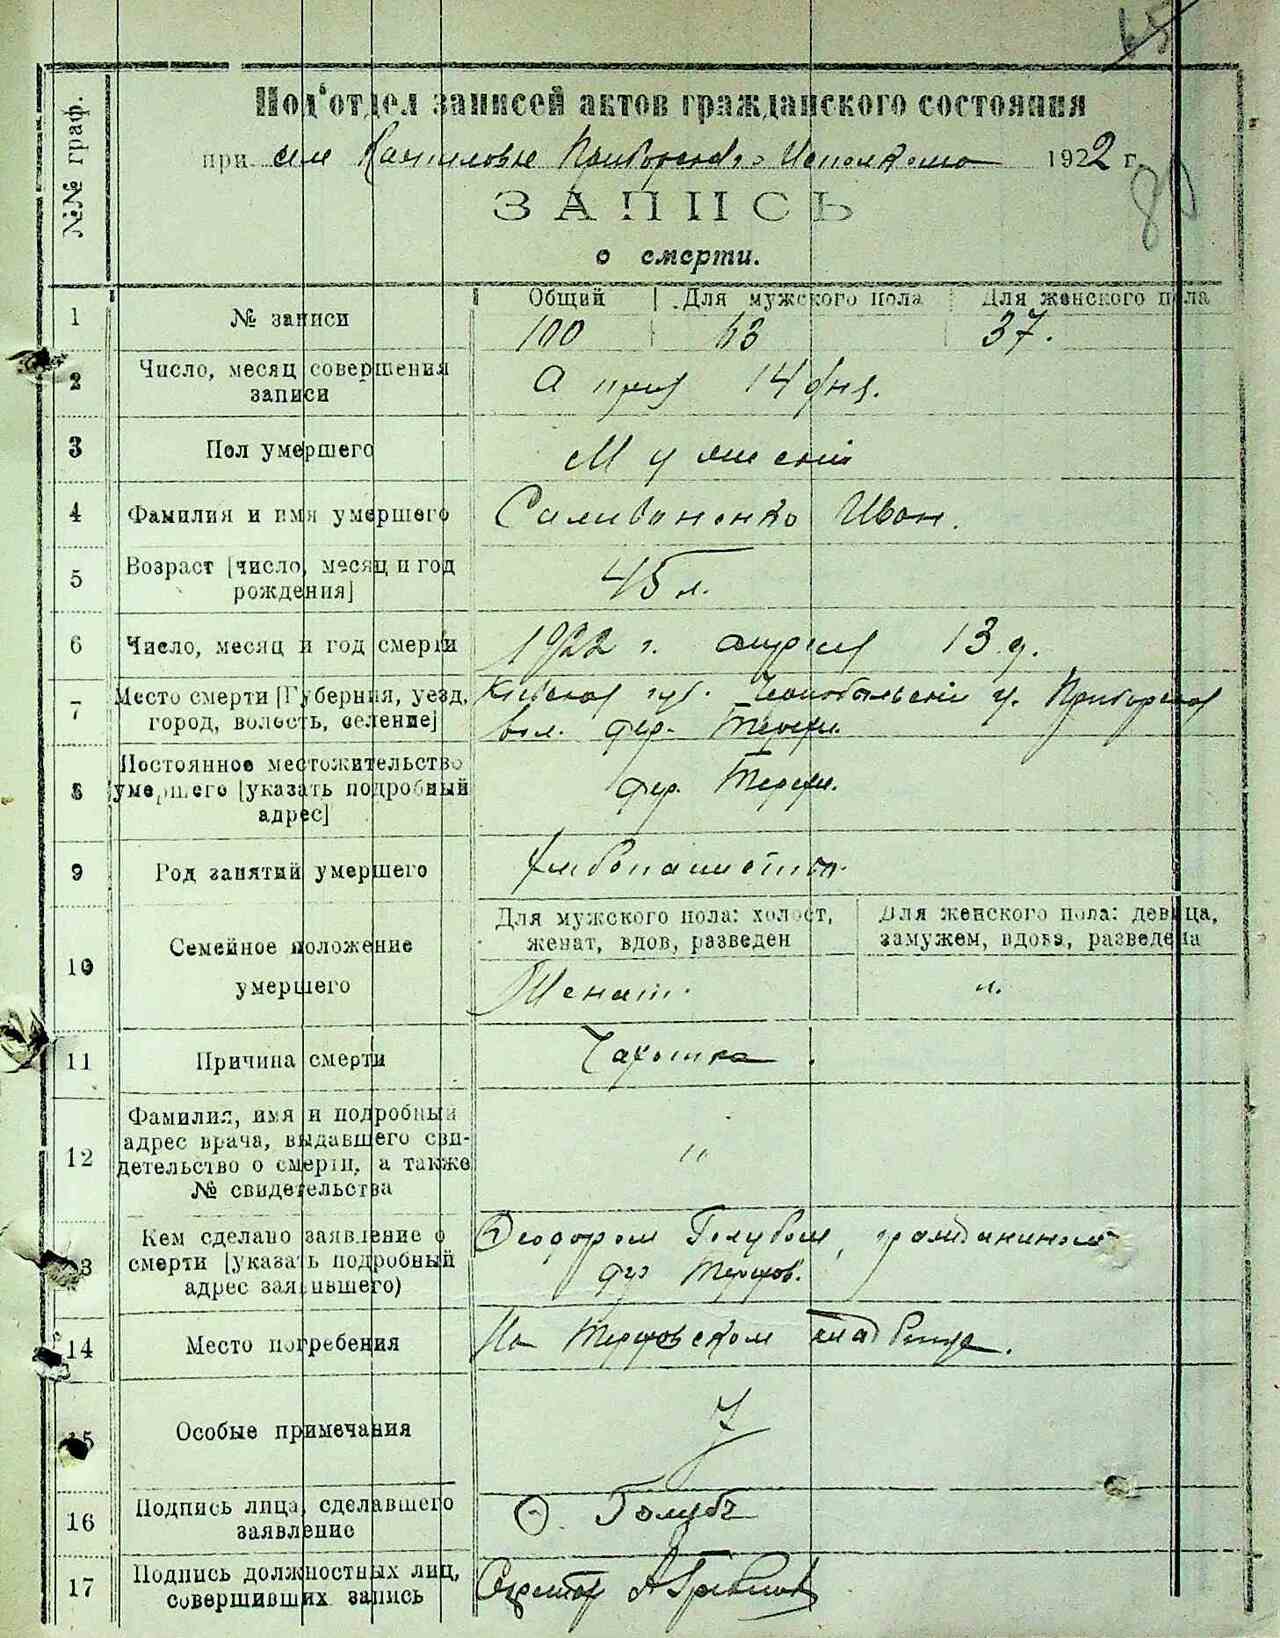 65
Под'отдел записей актов гражданского состояния
при селе Исполкома 1922 г.
80
ЗАПИСЬ
о смерти.
№№ граф.
Общий Для мужского пола Для женского пола
1 № записи 100 63 37.
2 Число, месяц совершения
записи Апреля 14 дня.
3 Пол умершего Мужеский
4 Фамилия и имя умершего Селивоненко Иван.
5 Возраст [число, месяц и год
рождения] 45 л.
6 Число, месяц и год смерти 1922 г. апреля 13 д.
7 Место смерти [Губерния, уезд, Киевская губ. Чернобыльский у. Приборская
город, волость, селение] вол. дер.
8 Постоянное местожительство
умершего [указать подробный дер.
адрес]
9 Род занятий умершего Хлебопашество.
Для мужского пола: холост, Для женского пола: девица,
женат, вдов, разведен замужем, вдова, разведена
10 Семейное положение
умершего Женат. "
11 Причина смерти Чахотка.
12 Фамилия, имя и подробный
адрес врача, выдавшего сви-
детельство о смерти, а также "
№ свидетельства
13 Кем сделано заявление о Феодором Голубом, гражданином
смерти [указать подробный дер.
адрес заявившего)
14 Место погребения На кладбище.
15 Особые примечания
16 Подпись лица, сделавшего
заявление Ѳ. Голубъ
17 Подпись должностных лиц,
совершивших запись Секретарь